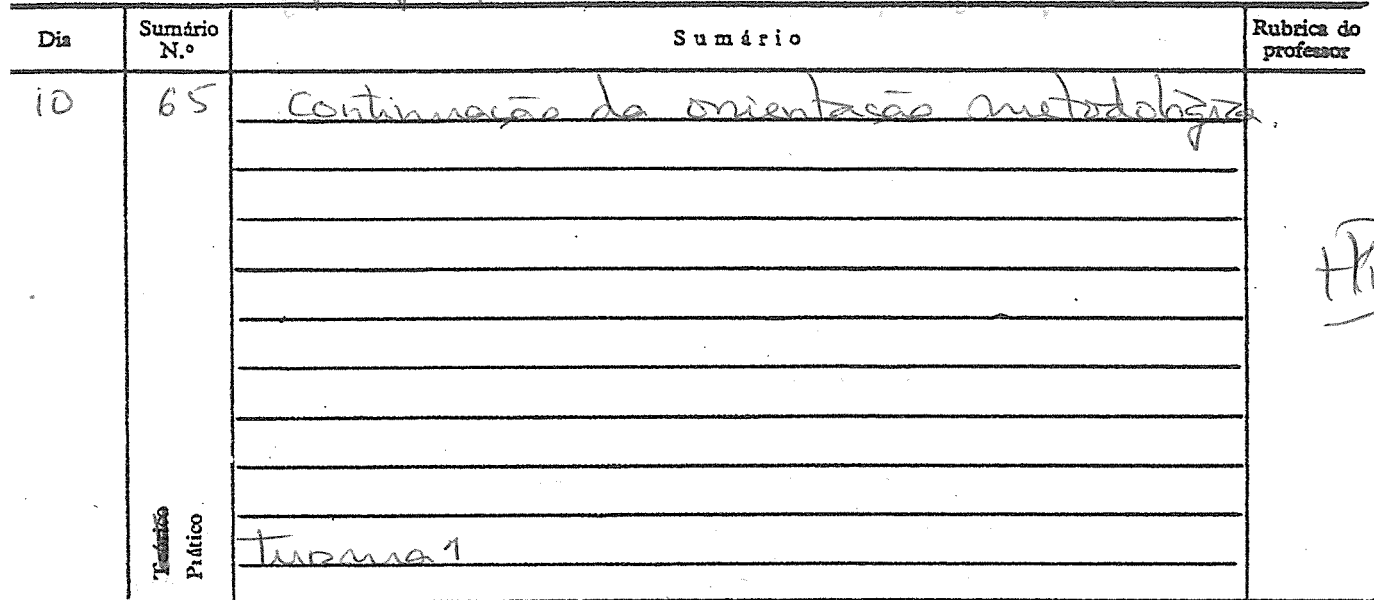 Dia Sumário N.º Sumário Rubrica do professor
10 65 Continuação da orientação metodológica.
Teórico
Prático
Turma 1